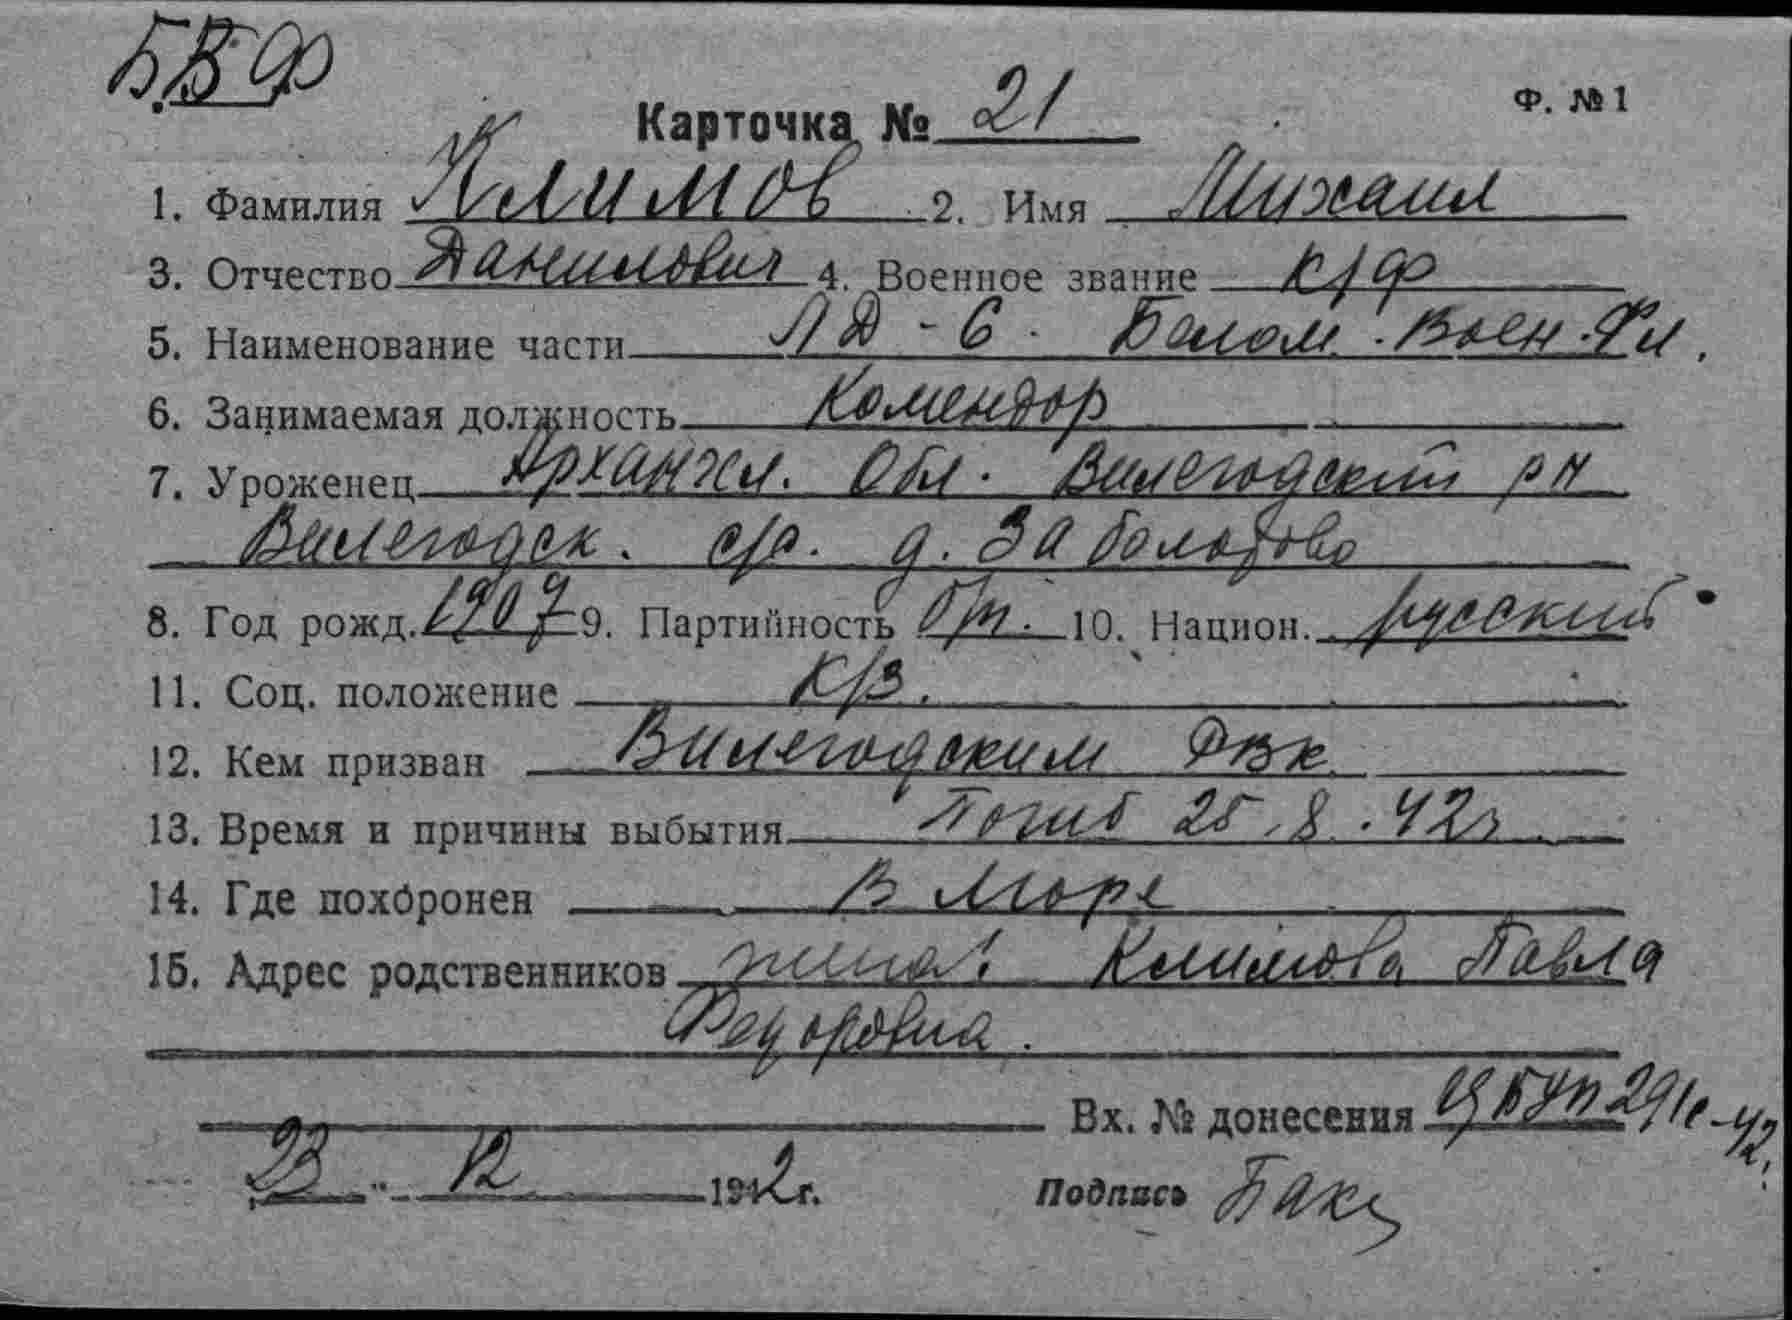 БВФ
Ф. №1
Карточка № 21
1. Фамилия Климов 2. Имя Михаил
3. Отчество Данилович 4. Военное звание к/ф
5. Наименование части ЛД-6. Белом. Воен. Фл.
6. Занимаемая должность Комендор
7. Уроженец Архангел. Обл. Вилегодский рн
Вилегодск. с/с. д. Заболотово
8. Год рожд. 1907 9. Партийность б/п. 10. Национ. русский
11. Соц. положение к/з.
12. Кем призван Вилегодским РВК
13. Время и причины выбытия Погиб 25.8.42г
14. Где похоронен В море
15. Адрес родственников жена: Климова Павла
Федоровна.
Вх. № донесения 291с-42.
23 12 1942г. Подпись